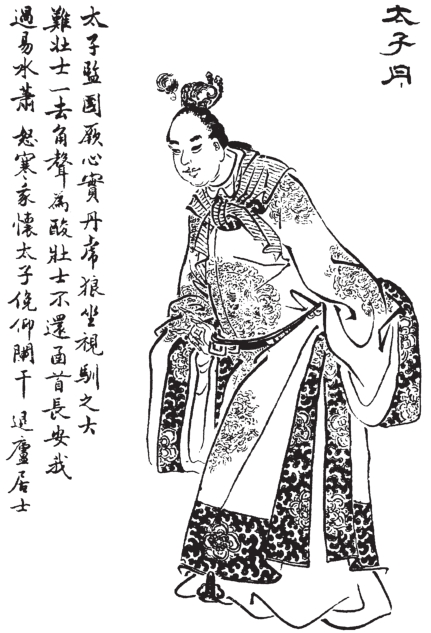 太子丹
太子監國厥心實丹虎狼坐視馴之大
難壯士一去角聲為酸壯士不還函首長安我
過易水蕭寒懷太子俛仰闌干 退廬居士